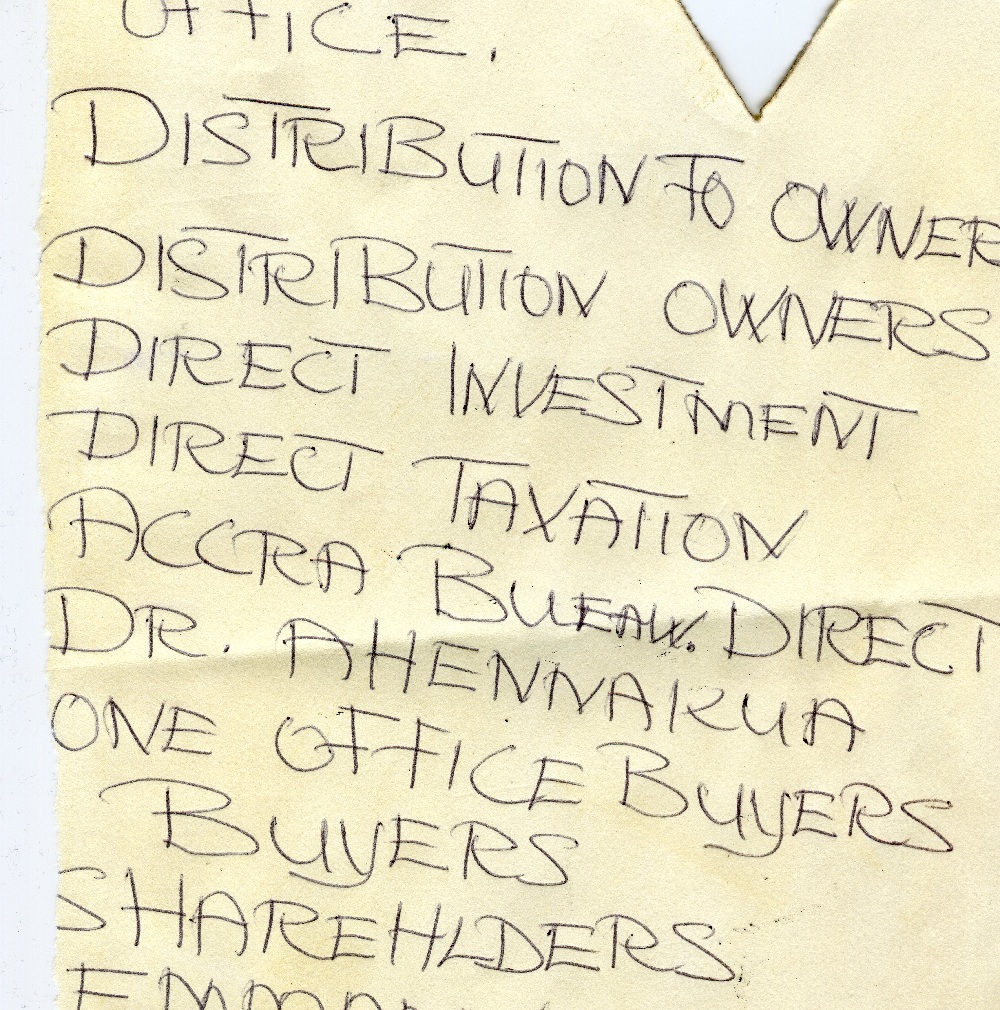 OFFICE.
DISTRIBUTION TO OWNER
DISTRIBUTION OWNERS
DIRECT INVESTMENT
DIRECT TAXATION
ACCRA BUEAU. DIRECT
DR. AHENNAKUA
ONE OFFICE BUYERS
BUYERS
SHAREHLDERS.